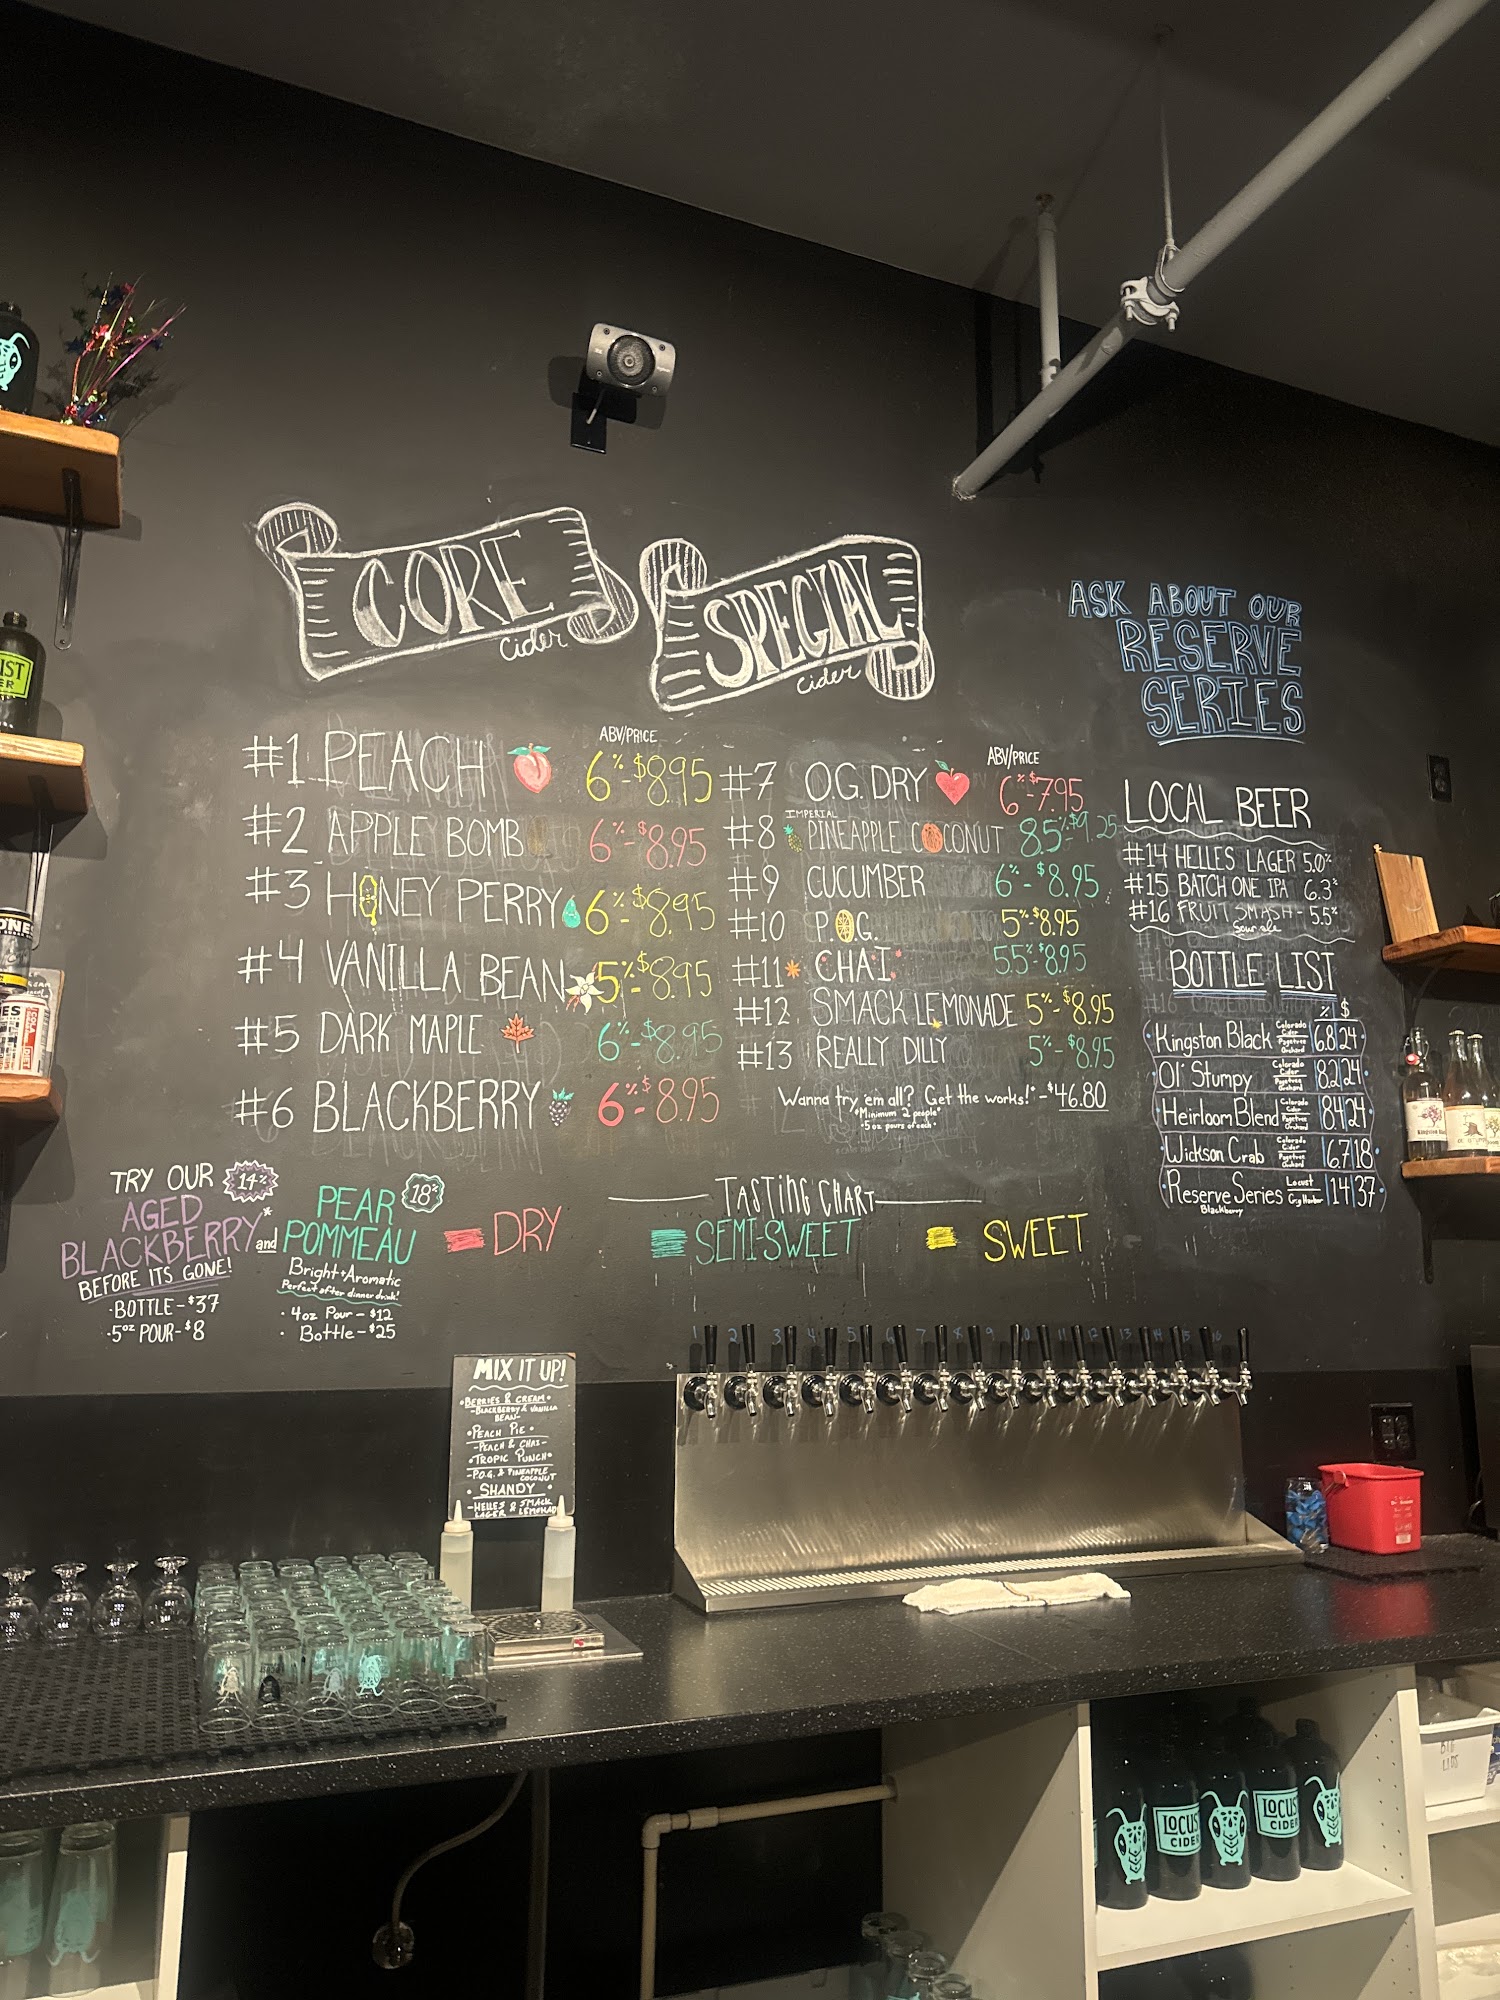 CORE
cider
SPECIAL
cider
ASK ABOUT OUR
RESERVE
SERIES
ABV/PRICE
#1 PEACH 6%-$8.95
#2 APPLE BOMB 6%-$8.95
#3 HONEY PERRY 6%-$8.95
#4 VANILLA BEAN 5%-$8.95
#5 DARK MAPLE 6%-$8.95
#6 BLACKBERRY 6%-$8.95
ABV/PRICE
#7 O.G. DRY 6%-$7.95
IMPERIAL
#8 PINEAPPLE COCONUT 8.5%-$9.25
#9 CUCUMBER 6%-$8.95
#10 P.O.G. 5%-$8.95
#11 CHAI 5.5%-$8.95
#12 SMACK LEMONADE 5%-$8.95
#13 REALLY DILLY 5%-$8.95
Wanna try 'em all? Get the works!*-$46.80
*Minimum 2 people*
•5oz pours of each•
LOCAL BEER
#14 HELLES LAGER 5.0%
#15 BATCH ONE IPA 6.3%
#16 FRUIT SMASH - 5.5%
Sour ale
BOTTLE LIST
% $
Kingston Black Colorado Cider 6.8 24
Ol' Stumpy Colorado Cider 8.2 24
Heirloom Blend Colorado Cider 8.4 24
Wickson Crab Colorado Cider 6.7 18
Reserve Series Locust Gig Harbor 14 37
Blackberry
TRY OUR 14%
AGED
BLACKBERRY* and
BEFORE ITS GONE!
•BOTTLE-$37
•5oz POUR-$8
PEAR 18%
POMMEAU
Bright+Aromatic
Perfect after dinner drink!
• 4oz Pour - $12
• Bottle - $25
TASTING CHART
DRY SEMI-SWEET SWEET
1 2 3 4 5 6 7 8 9 10 11 12 13 14 15 16
MIX IT UP!
•BERRIES & CREAM•
-BLACKBERRY & VANILLA
BEAN-
•PEACH PIE•
-PEACH & CHAI-
•TROPIC PUNCH•
-P.O.G. & PINEAPPLE
COCONUT
• SHANDY •
-HELLES & SMACK
LAGER LEMONADE
BIG
LIDS
LOCUST
CIDER
LOCUST
CIDER